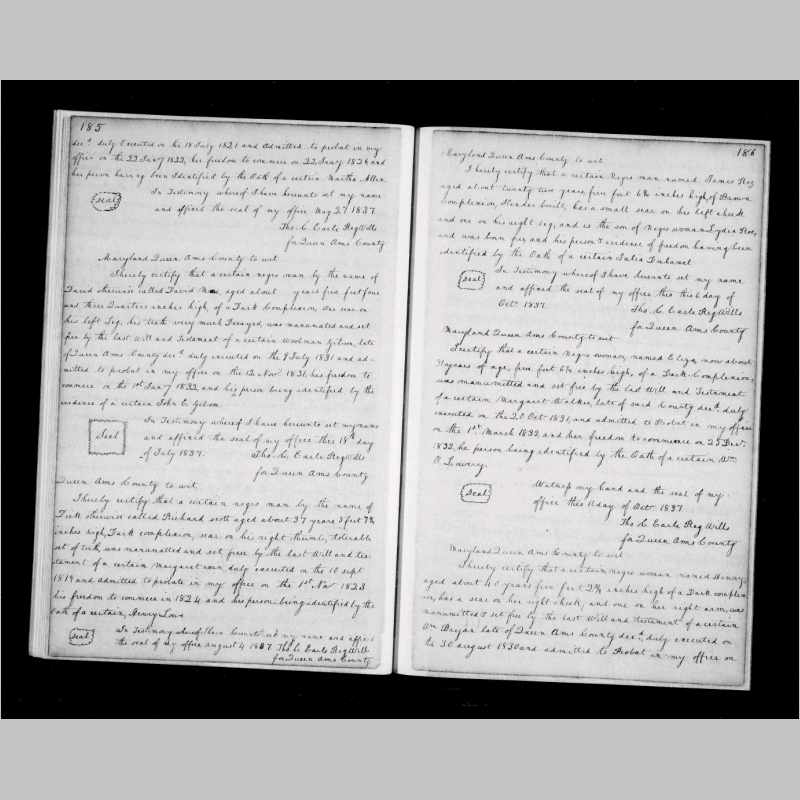 185
decd duly Executed on his 18 July 1821 and admitted to probat in my
office on the 22 Jany 1822, his freedom to commence on 22 Jany 1824 and
his person having been Identified by the Oath of a certain Martha Allen
In Testimony whereof I have hereunto set my name
Seal
and affixed the seal of my office May 27 1837.
Tho. C Earle Reg Wills
for Queen Anns County
Maryland Queen Anns County to wit
I hereby certify that a certain negro man by the name of
David otherwise called David aged about years five feet four
and three Quarters inches high of a Dark Complexion, One scar on
his left Leg, his teeth very much Decayed, was manumated and set
free by the last Will and Testament of a certain Woolman Gibson, late
of Queen Anns County decd duly executed on the 8 July 1831 and ad-
mitted to probat in my office on the 12 Nov. 1831, his freedom to
commence on the 1st Jany 1832, and his person being identified by the
evidence of a certain John E. Gibson
In Testimony whereof I have hereunto set my name
Seal
and affixed the seal of my office this 18th day
of July 1837. Tho. C Earle Reg Wills
for Queen Anns County
Queen Anns County to wit
I hereby certify that a certain negro man by the name of
Dick otherwise called Richard scott aged about 37 years 5 feet 7¾
inches high, Dark complexion, scar on his right thumb, tolerable
set of teeth, was manumated and set free by the last Will and tes-
tament of a certain Margaret duly executed on the 10 sept
1819 and admitted to probate in my office on the 1st Nov 1823
his freedom to commence in 1824 and his person being identified by the
Oath of a certain, Henry
In Testimony whereof I have hereunto set my name and affixed
Seal
the seal of my office august 4 1837 Tho C Earle Reg Wills
for Queen Anns County
186
Maryland Queen Anns County to wit
I hereby certify that a certain Negro man named James Roe
aged about twenty two years five feet 6¾ inches high, of Brown
complexion, Slender built, has a small scar on his left cheek
and one on his right leg, and is the son of Negro woman Lydia Roe,
and was born free and his person & evidence of freedom having been
identified by the Oath of a certain Julia
In Testimony whereof I have hereunto set my name
Seal
and affixed the seal of my office this day of
Octr 1837. Tho. C Earle Reg Wills
for Queen Anns County
Maryland Queen Anns County to wit
I certify that a certain Negro woman, named Eliza, now about
31 years of age, five feet 6½ inches high, of a Dark Complexion,
was manumitted and set free by the last Will and Testament
of a certain Margaret Walker, late of said County decd duly
executed on the 20 Oct 1831, and admitted to Probat in my office
on the 1st March 1832, and her freedom to commence on 25 Decr
1832, her person being identified by the Oath of a certain Wm
O. Lowery.
Witness my hand and the seal of my
Seal
office this day of Octr 1837
Tho C Earle Reg Wills
for Queen Anns County
Maryland Queen Anns County to wit
I hereby certify that a certain negro woman named Henny
aged about 40 years five feet 2¾ inches high of a Dark complex-
ion, has a scar on her right cheek, and one on her right arm, was
manumitted & set free by the last Will and testament of a certain
Wm Bryan late of Queen Anns County decd, duly executed on
the 30 august 1830 and admitted to Probat in my office on